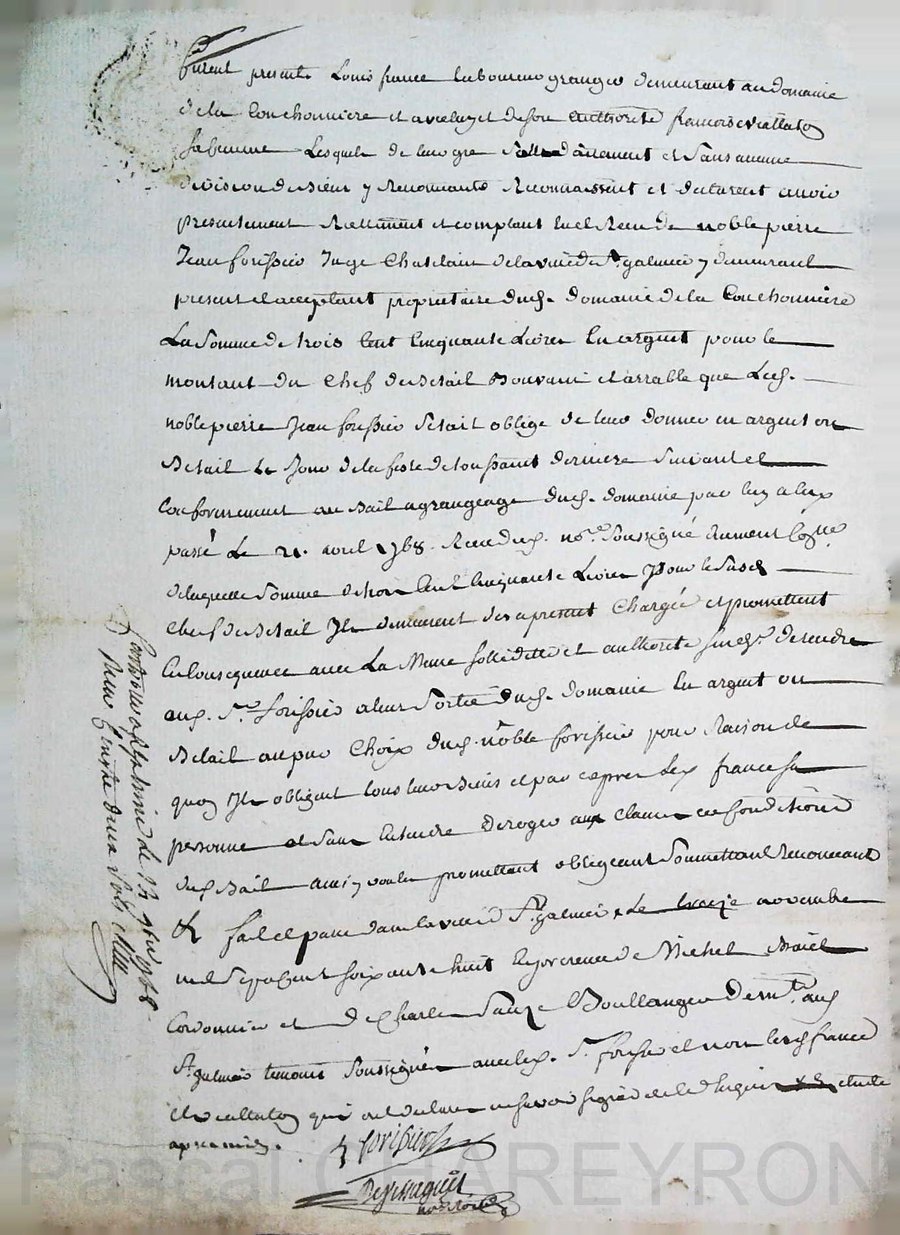 furent presents Louis france laboureur granger demeurant au domaine
de la Couchonniere et avec luy et de son authorité francoise viallaton
sa femme Lesquels de leur gre sollidairement et sans aucune
division de biens y Renoncants Reconnaissent et declarent avoir
presentement Reellement et comptant eu et Receu de noble pierre
Jean forissier Juge Chatelain de la ville de St galmier y demeurant
present et acceptant proprietaire dud. domaine de la Couchonniere
La Somme de trois Cent Cinquante Livres En argent pour le
montant du Chef de Betail Bouvant et arrable que Led.
noble pierre Jean forissier Setait obligé de leur donner en argent ou
Betail Le Jour de la feste de toussaint derniere Suivant et
Conformement au Bail a grangeage dud. domaine par luy a eux
passé Le 21. avril 1768. Receu dud. no.re Soussigné dument Cōllé
de laquelle Somme de trois Cent Cinquante Livres pour le Susd.
Chef de Betail Ils demeurent des a present Chargés et promettent
En Consequence avec La Meme sollidité et authorité Susd. de rendre
aud. Sr. forissier a leur Sortie dud. domaine En argent ou
Betail au pur Choix dud. noble forissier pour Raison de
quoy Ils obligent tous leurs Biens et par exprés Led. france sa
personne et Sans Entendre deroger aux clauses et Conditions
dud. Bail ainsy voulu promettant obligeant Soumettant Renonceant
& fait et passé dans la ville de St galmier Le treize novembre
mil Sept Cent soixante huit En presence de Michel
Cordonnier et de Charles Sauze Boullanger demt. aud.
St. galmier temoins Soussignés avec led. Sr. forissier et non lesd. france
et viallaton qui ont declaré ne Scavoir signer de ce Enquis et
apres midy.
forissier
notaire
Controllé a St galmier le 14 9bre 1768.
Receu
Pascal CHAREYRON